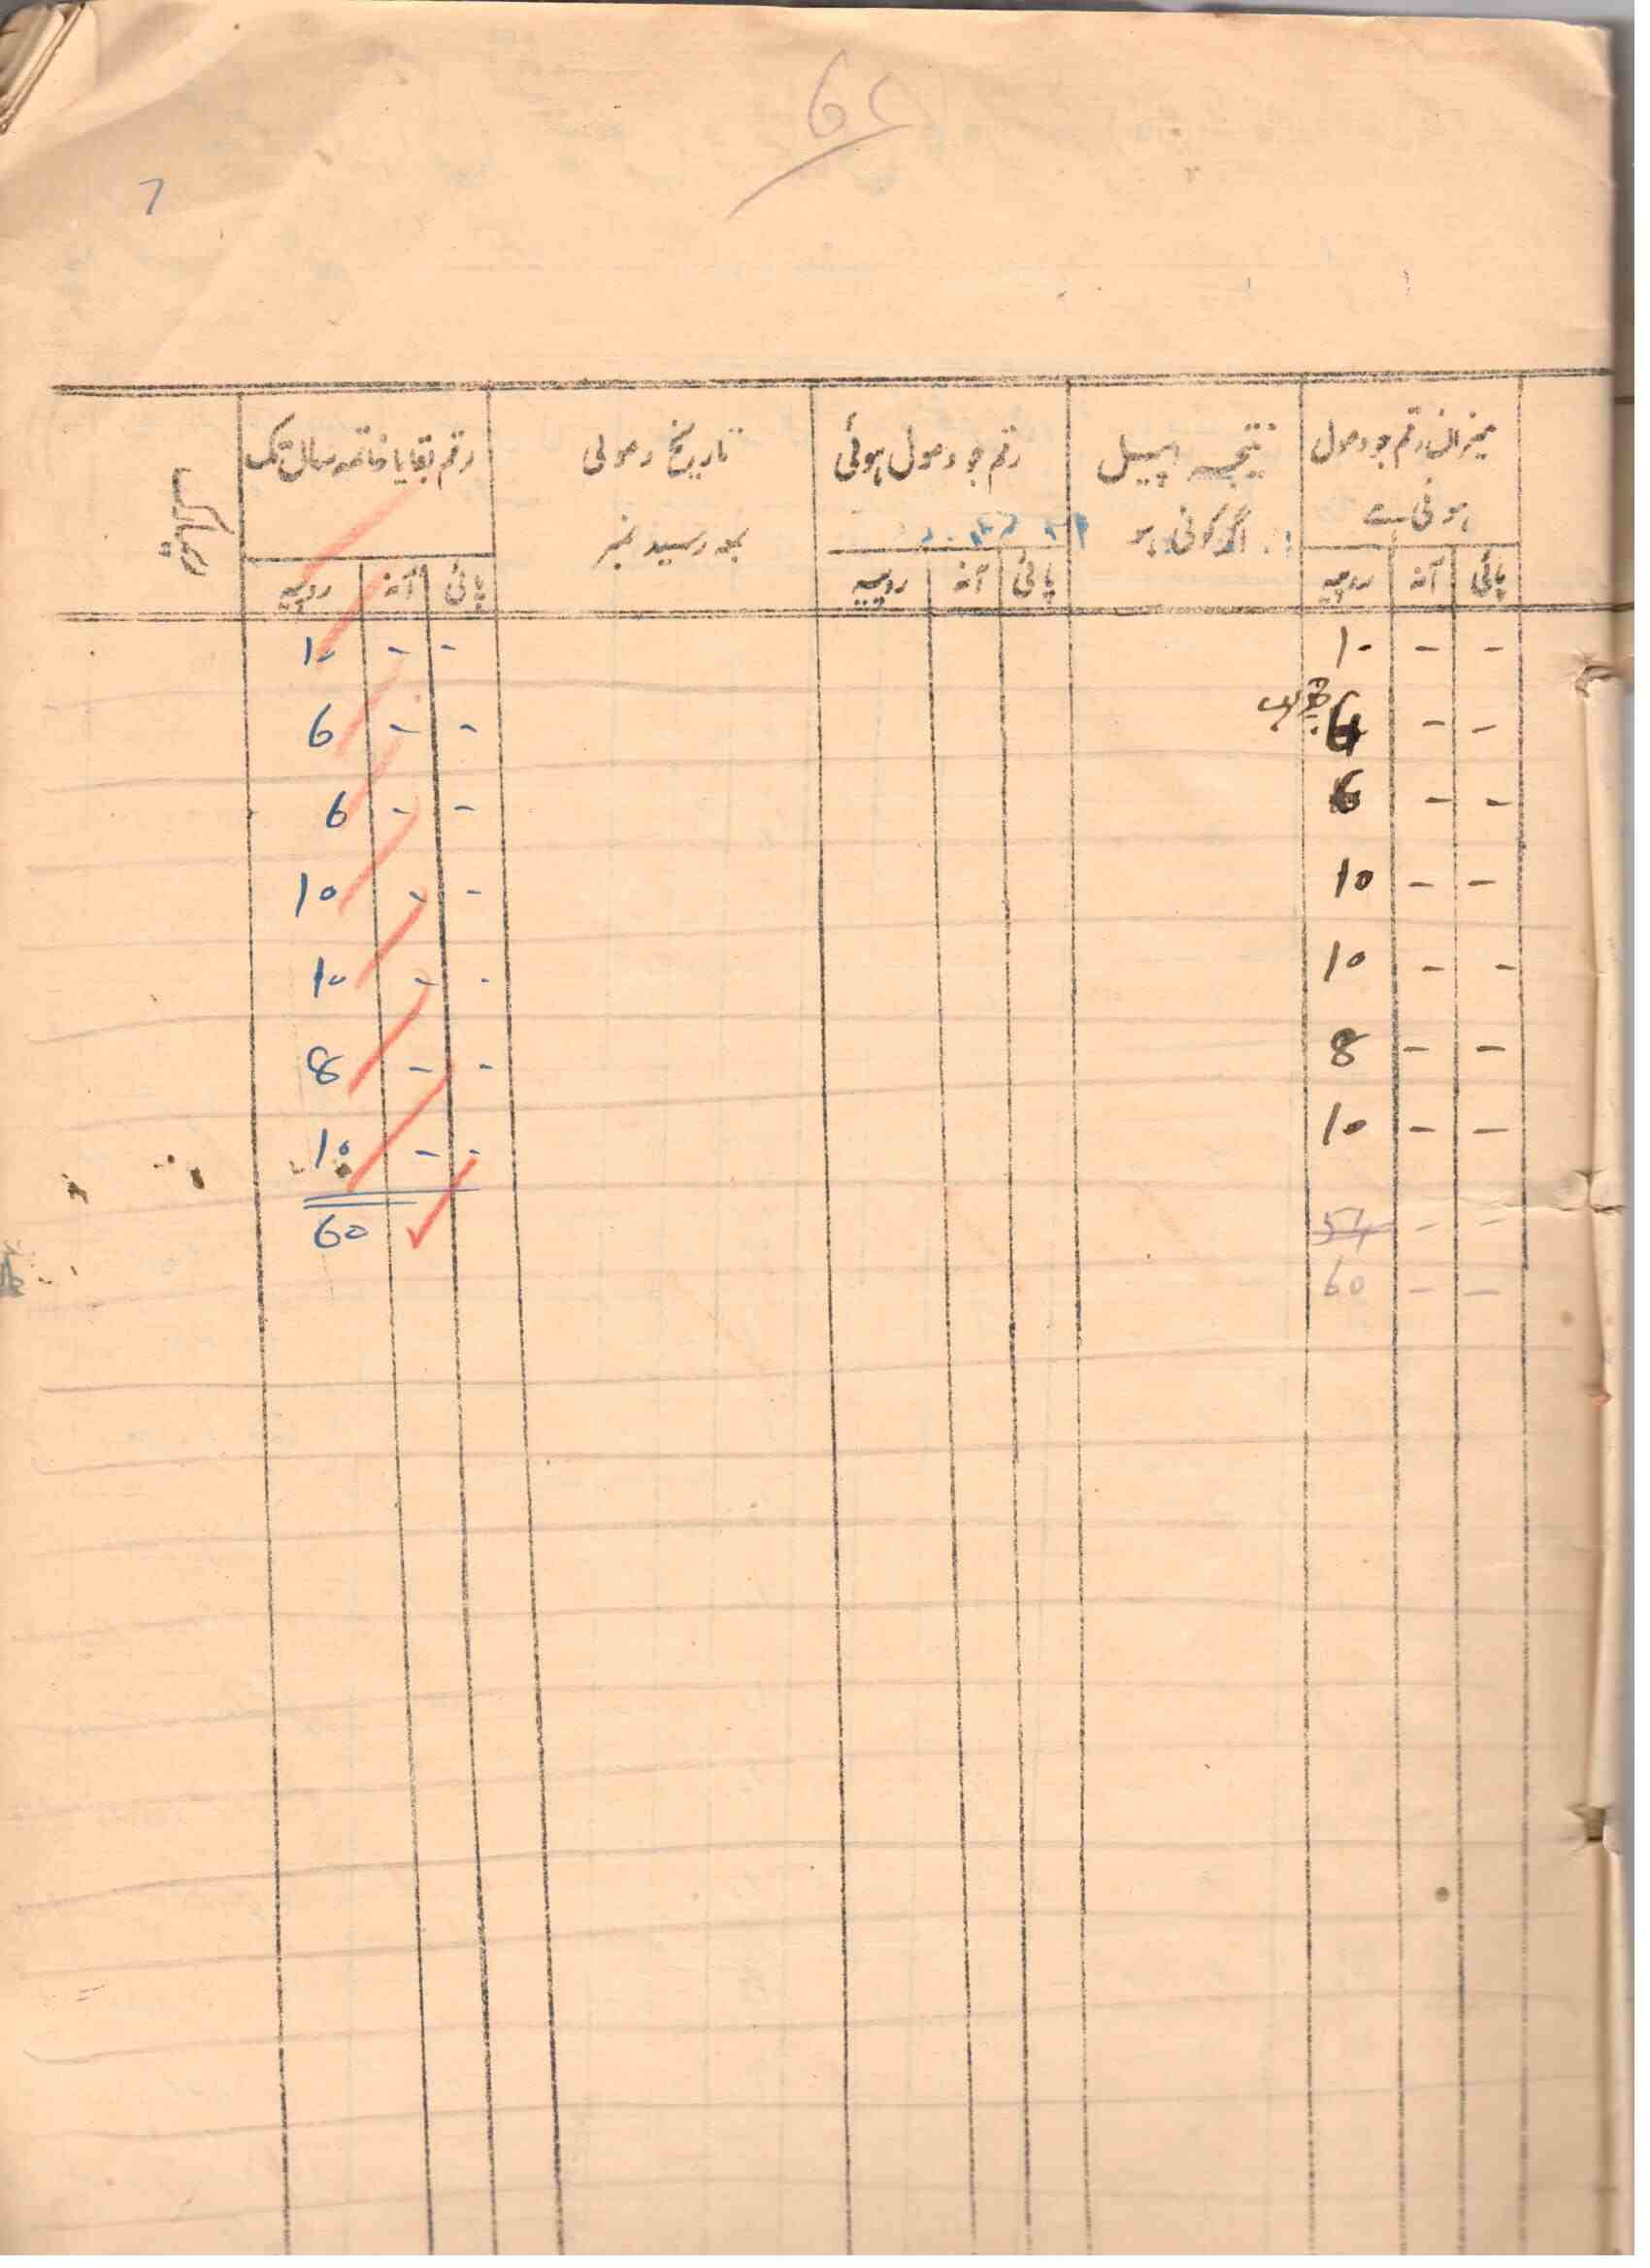 7
میزان رقم جو وصول ہونی ہے
نتیجہ اپیل اگر کوئی ہو
رقم جو وصول ہوئی
تاریخ وصولی بمعہ رسید نمبر
رقم بقایا خاتمہ سال تک
پائی آنہ روپیہ پائی آنہ روپیہ پائی آنہ روپیہ
10 - - 10 - -
6 - - 6 - -
6 - - 6 - -
10 - - 10 - -
10 - - 10 - -
8 - - 8 - -
10 - - 10 - -
54 - - 60
60 - -